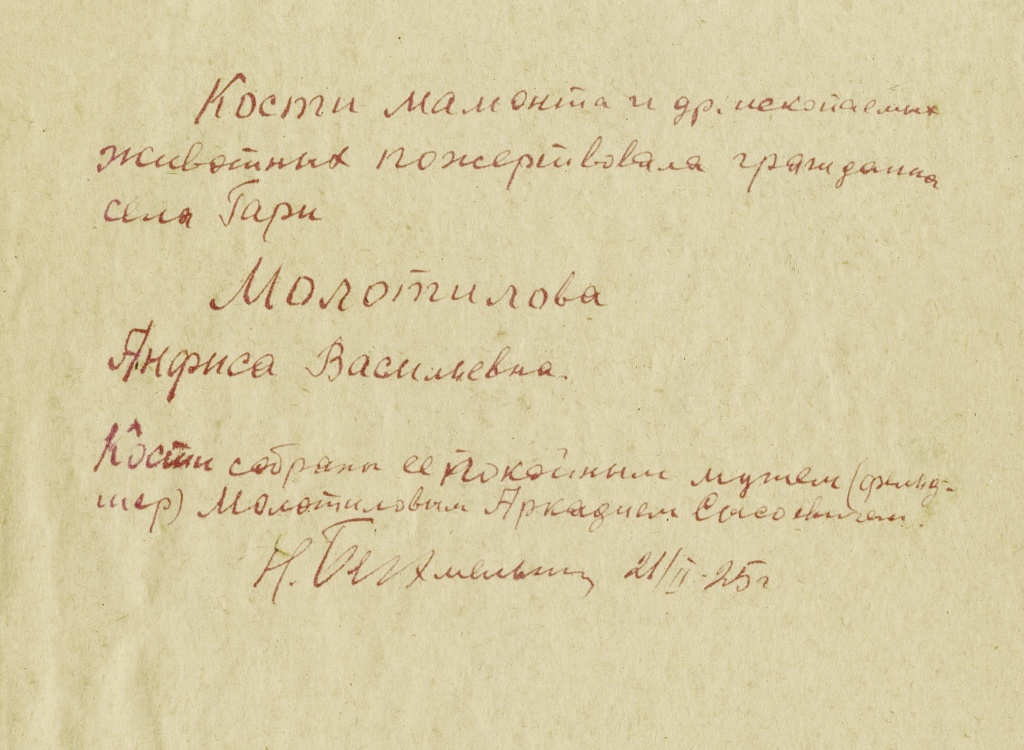 Кости мамонта и др. ископаемых
животных пожертвовала гражданка
села Гари
Молотилова
Анфиса Васильевна.
Кости собраны ее покойным мужем (фельд-
шер) Молотиловым Аркадием Сысоевичем.
Н. 21/II-25г